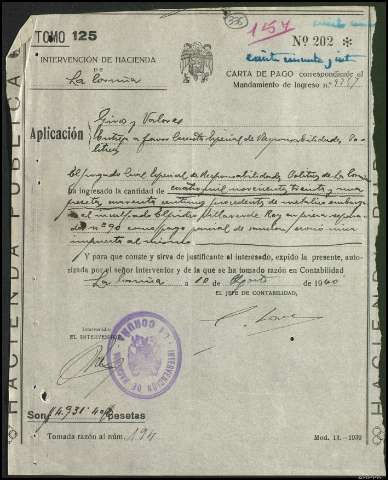 TOMO 125
(336)
157
Nº 202 *
INTERVENCIÓN DE HACIENDA
DE
La Coruña
CARTA DE PAGO correspondiente al
Mandamiento de Ingreso n.º
Aplicación
Giros y Valores
Entrega a favor Cuenta Especial de Responsabilidades Po-
líticas
El Juzgado Civil Especial de Responsabilidades Políticas de La Coruña
ha ingresado la cantidad de cuatro mil novecientas treinta y una
pesetas, cuarenta céntimos, procedente de metálico embarga-
do al inculpado Villaverde Rey
nº 90 como pago parcial de sanción
impuesta al mismo
Y para que conste y sirva de justificante al interesado, expido la presente, auto-
rizada por el señor Interventor y de la que se ha tomado razón en Contabilidad
La Coruña a 10 de Agosto de 1940
EL JEFE DE CONTABILIDAD,
Intervenido
EL INTERVENTOR
INTERVENCIÓN DE HACIENDA
LA CORUÑA
Son 4.931.40 pesetas
Tomada razón al núm. 194
Mod. 13.-1939
HACIENDA PÚBLICA
HACIENDA PÚBLICA